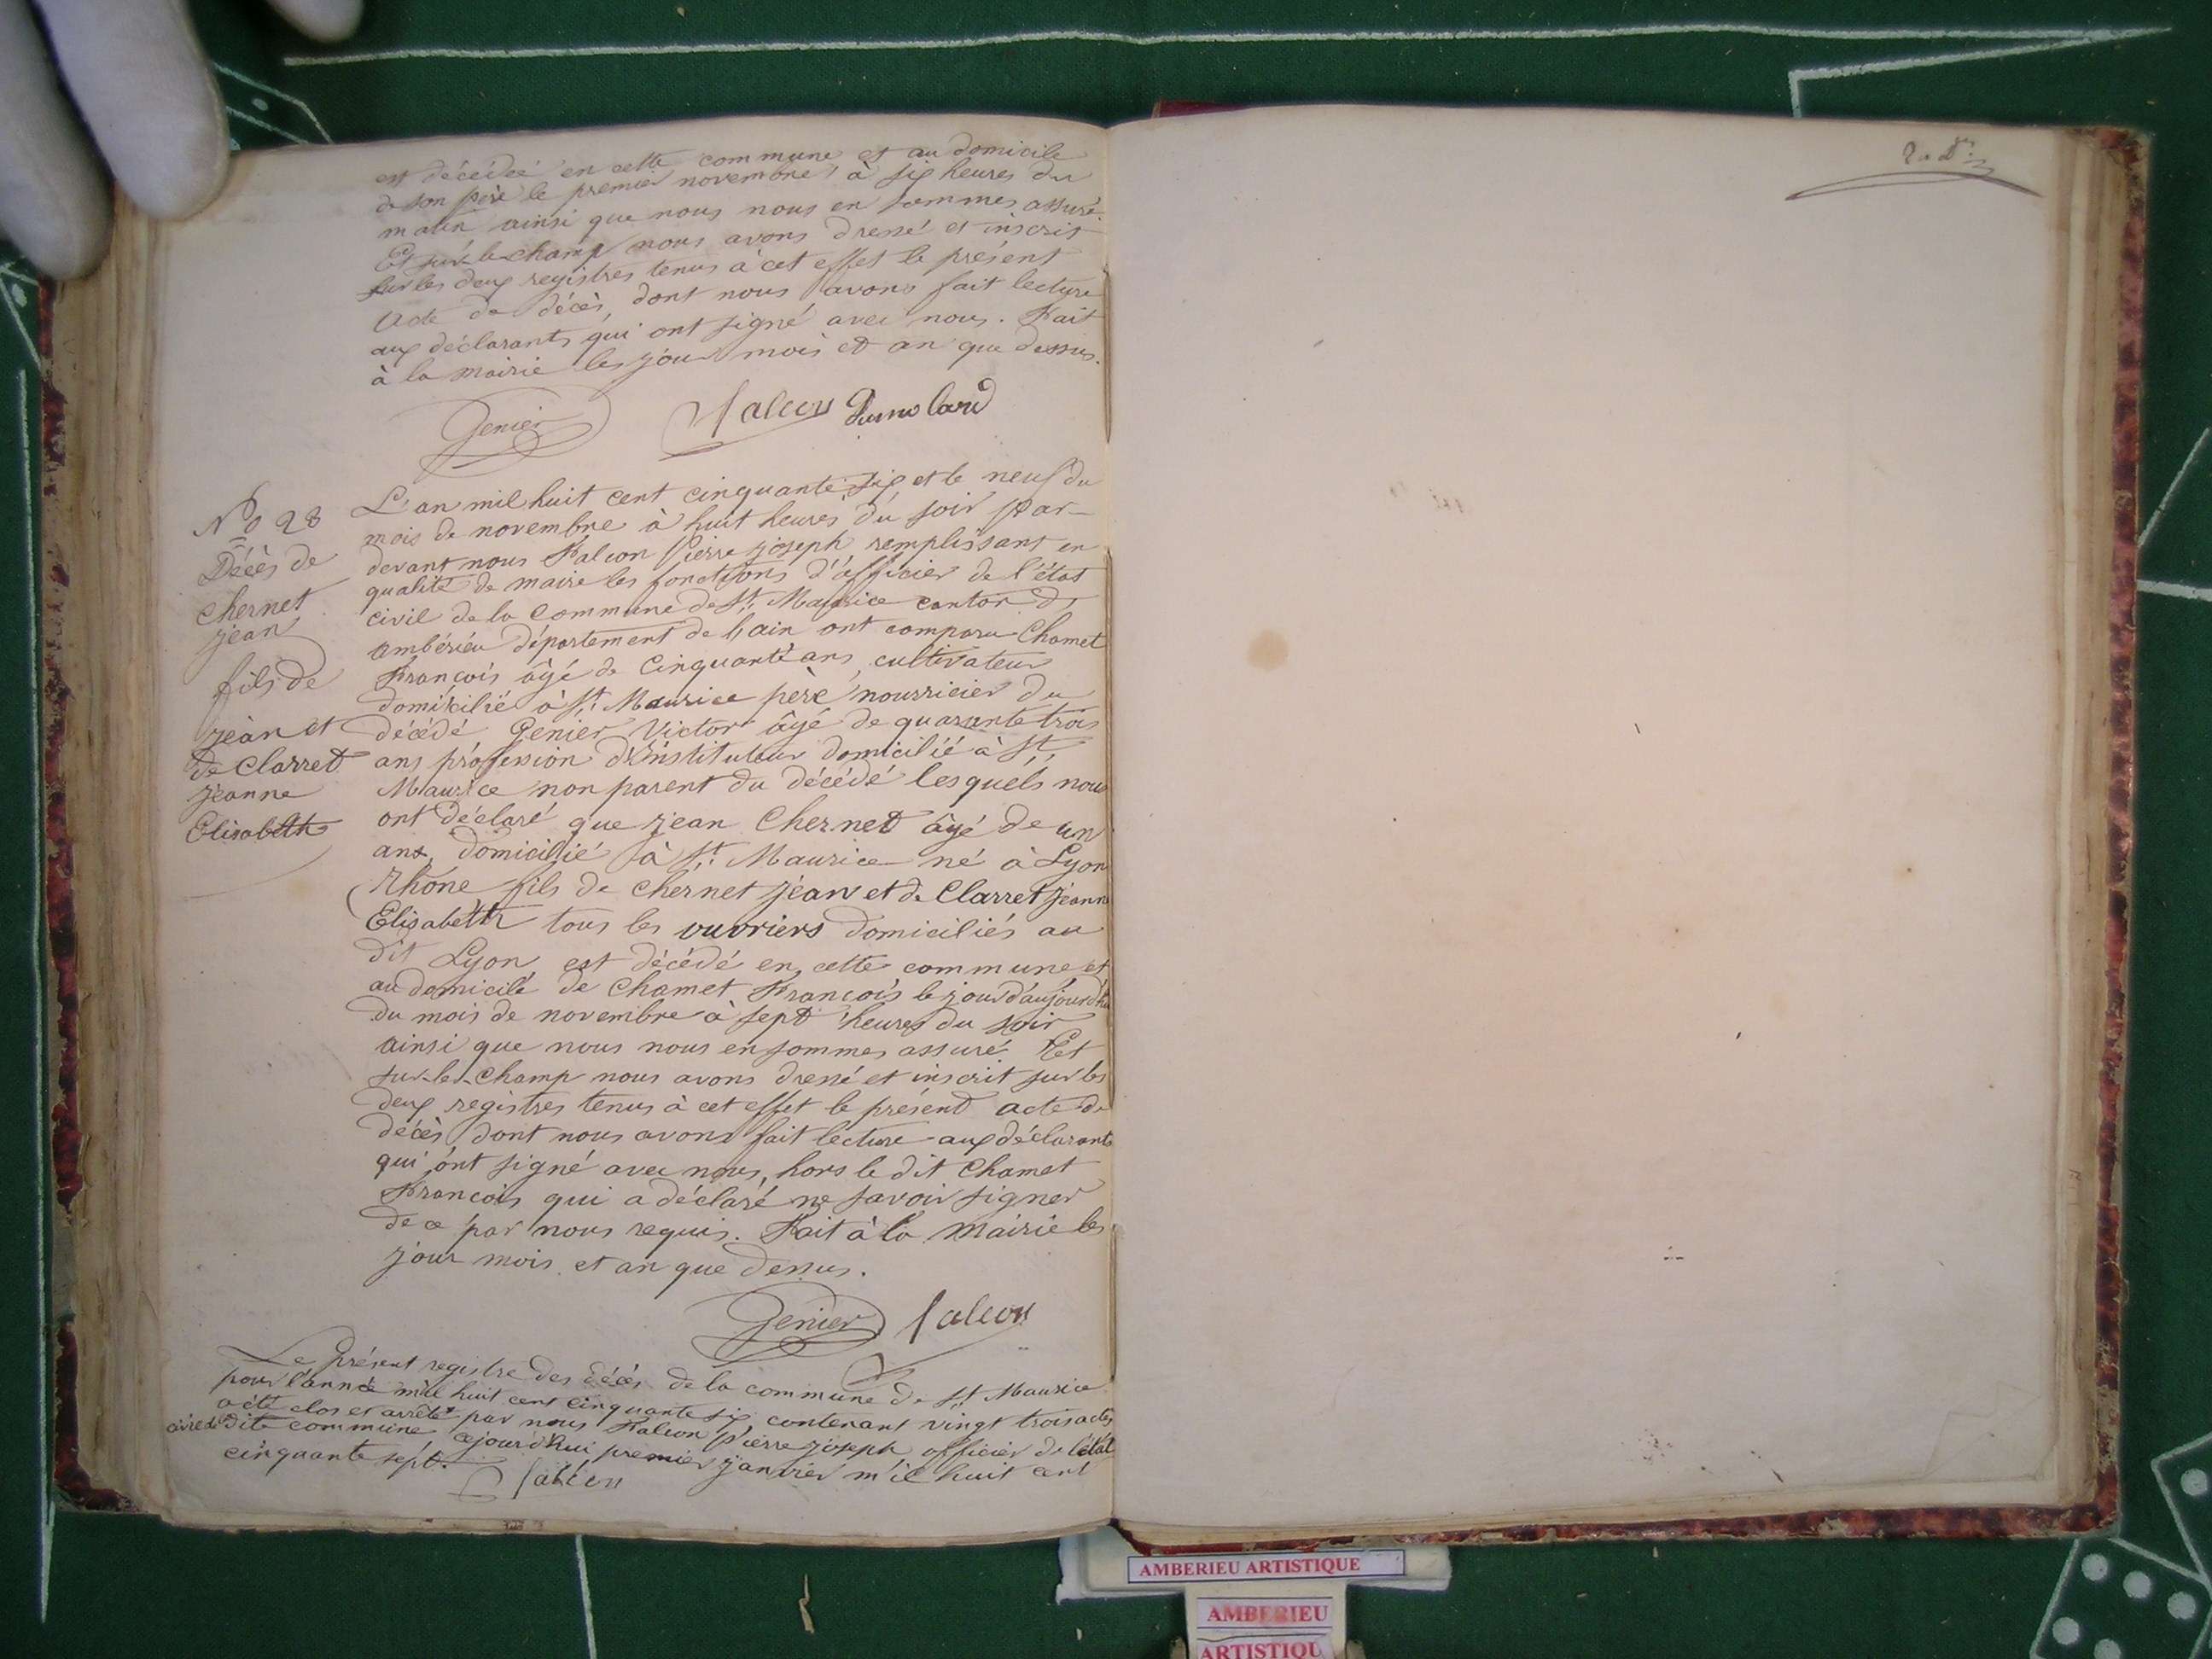 est décédée en cette commune et au domicile
de son père le premier novembre à six heures du
matin ainsi que nous nous en sommes assuré.
Et sur-le-champ nous avons dressé et inscrit
sur les deux registres tenus à cet effet le présent
acte de décès, dont nous avons fait lecture
aux déclarants qui ont signé avec nous. Fait
à la mairie les jour mois et an que dessus.
Genier Falcon Dumolard
No 28
Décès de
Chernet
Jean
fils de
Jean et
de Clarret
Jeanne
Elisabeth
L'an mil huit cent cinquante-six et le neuf du
mois de novembre à huit heures du soir par-
devant nous Falcon Pierre Joseph remplissant en
qualité de maire les fonctions d'officier de l'état
civil de la commune de St. Maurice canton d'
Ambérieu département de l'ain ont comparu Chamet
François âgé de cinquante ans, cultivateur
domicilié à St. Maurice père nourricier du
décédé Genier Victor âgé de quarante trois
ans profession d'instituteur domicilié à St.
Maurice non parent du décédé lesquels nous
ont déclaré que Jean Chernet âgé de un
ans, domicilié à St. Maurice né à Lyon
Rhône fils de Chernet Jean et de Clarret Jeanne
Elisabeth tous les ouvriers domiciliés au
dit Lyon est décédé en cette commune et
au domicile de Chamet François le jour d'aujourd'hui
du mois de novembre à sept heures du soir
ainsi que nous nous en sommes assuré Et
sur-le-champ nous avons dressé et inscrit sur les
deux registres tenus à cet effet le présent acte de
décès dont nous avons fait lecture aux déclarants
qui ont signé avec nous, hors le dit Chamet
François qui a déclaré ne savoir signer
de ce par nous requis. Fait à la mairie les
jour mois et an que dessus.
Genier Falcon
Le présent registre des décès de la commune de St. Maurice
pour l'année mil huit cent cinquante six, contenant vingt trois actes
a été clos et arrêté par nous Falcon Pierre Joseph officier de l'état
civil de dite commune cejourd'hui premier janvier mil huit cent
cinquante sept.
Falcon
AMBERIEU ARTISTIQUE
AMBERIEU
ARTISTIQU